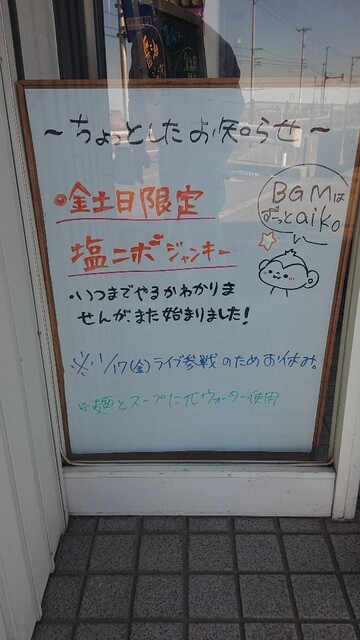 ～ちょっとしたお知らせ～
BGMは
ずっとaiko
・金土日限定
塩ニボジャンキー
・いつまでやるかわかりま
せんがまた始まりました！
※11/17(金)ライブ参戦のためお休み。
麺とスープにπウォーター使用